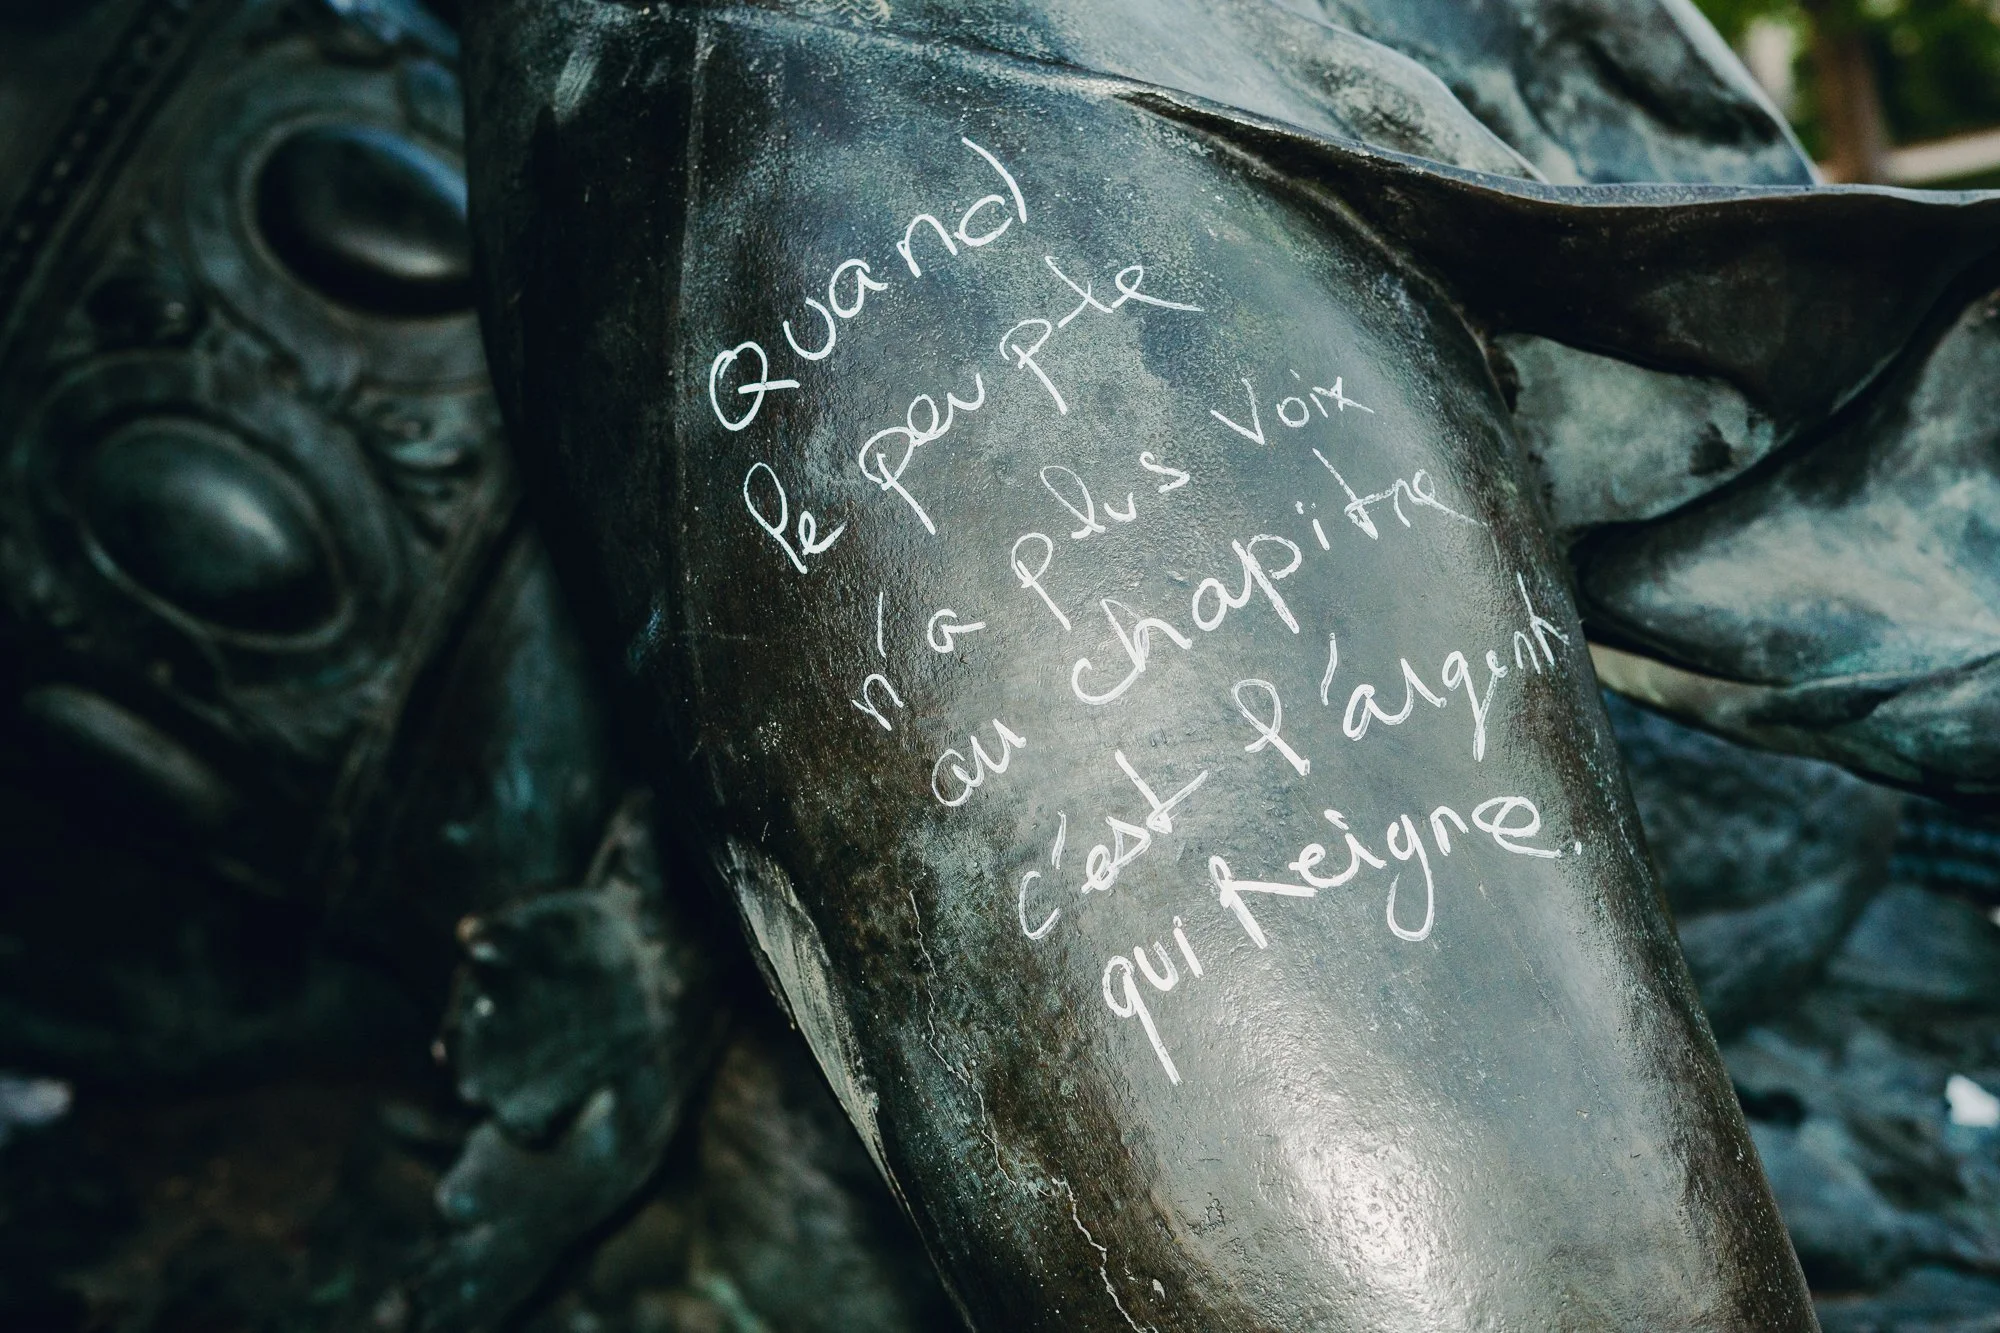 Quand
le peuple
n'a plus voix
au chapitre
c'est l'argent
qui reigne.